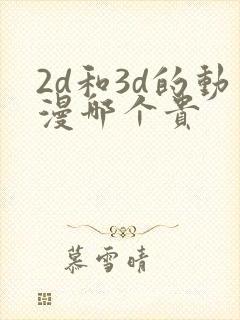 2d和3d的動
漫哪个贵
慕雪晴